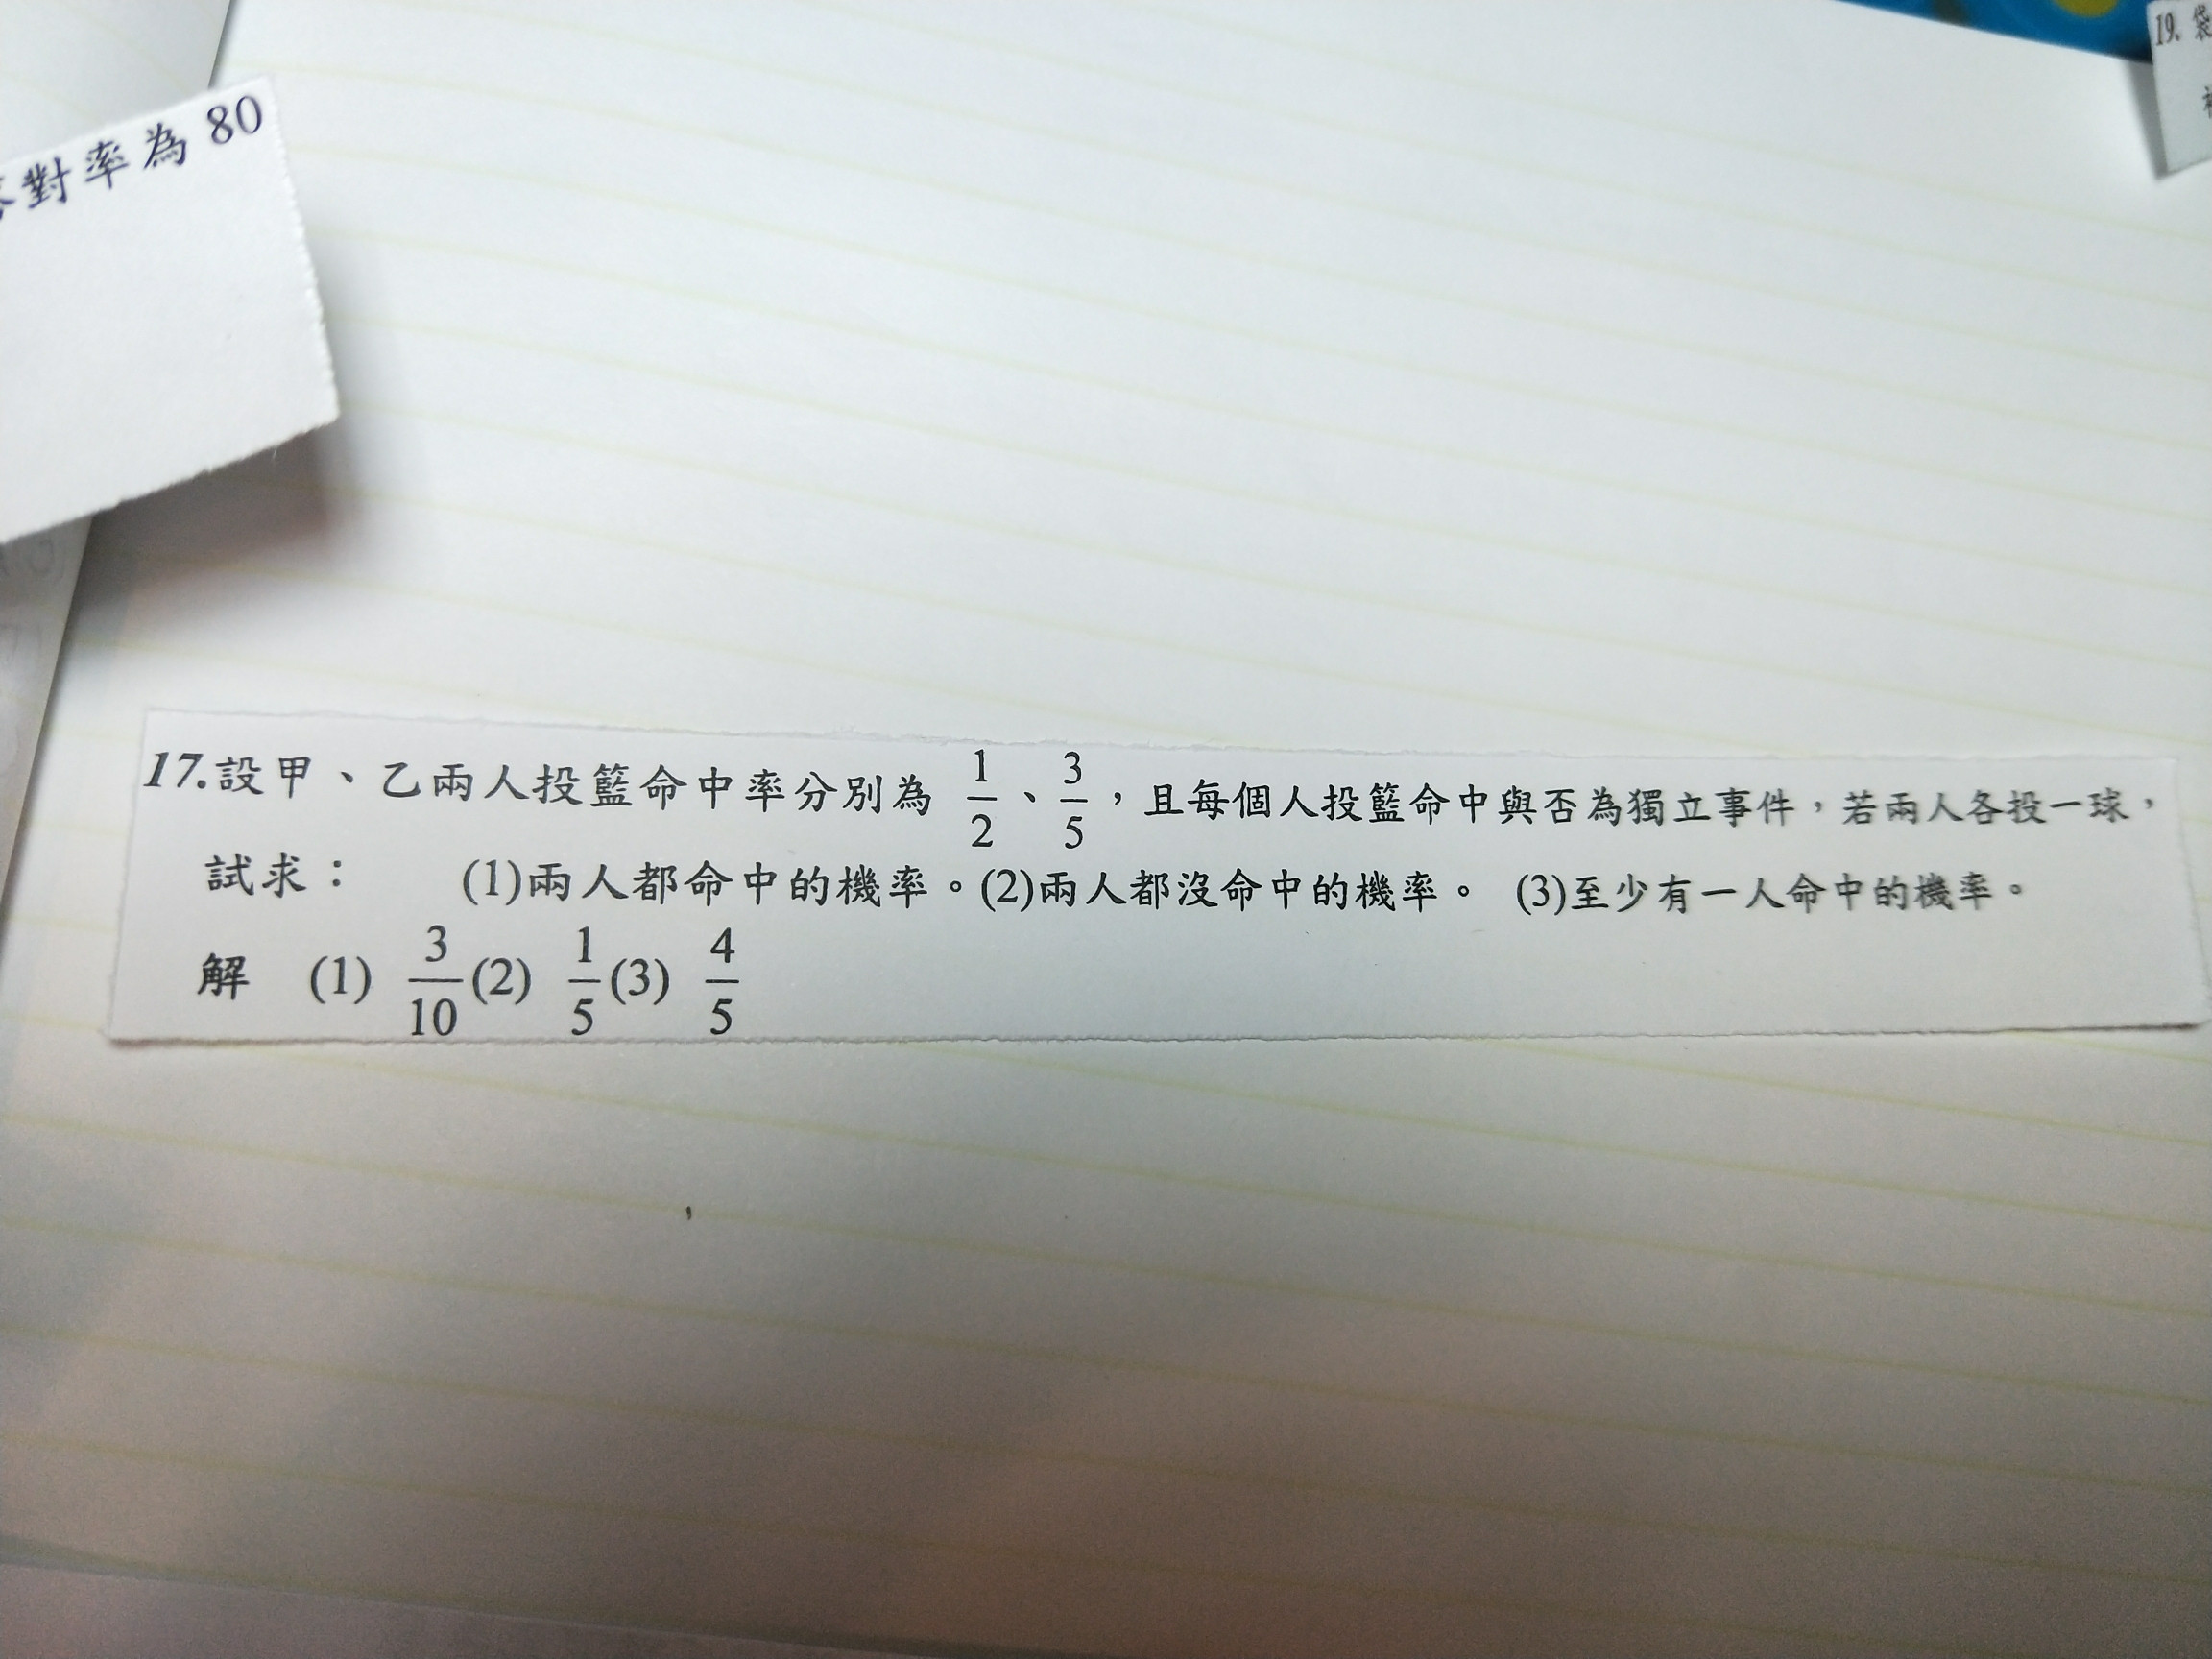 對率為 80
19. 袋
17.設甲、乙兩人投籃命中率分別為 1/2、3/5，且每個人投籃命中與否為獨立事件，若兩人各投一球，
試求： (1)兩人都命中的機率。(2)兩人都沒命中的機率。 (3)至少有一人命中的機率。
解 (1) 3/10 (2) 1/5 (3) 4/5